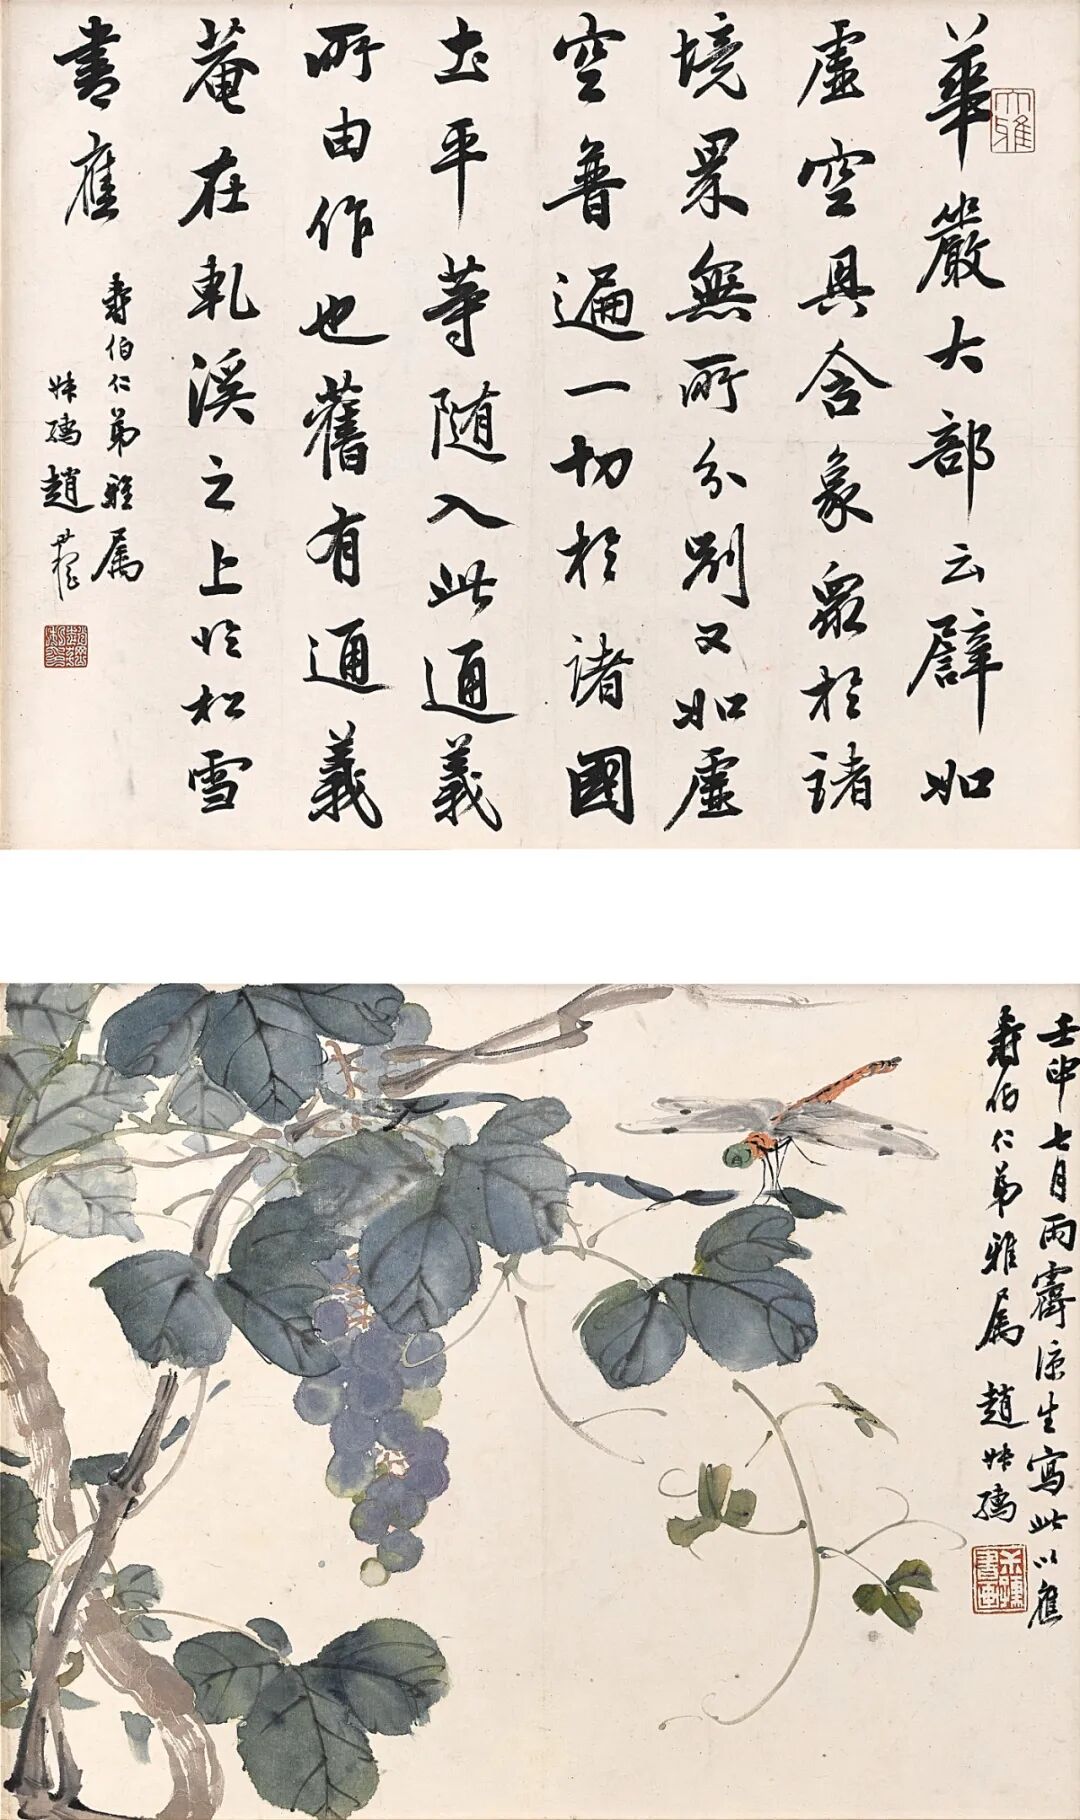 華嚴大部云譬如
虛空具含象衆於諸
境界無所分別又如虛
空普遍一切於諸國
土平等随入此通義
所由作也舊有通義
菴在軋溪之上臨松雪
書應
壽伯仁弟雅属
叔孺趙
大雅
壬申七月雨霽涼生寫此以應
壽伯仁弟雅属 趙叔孺